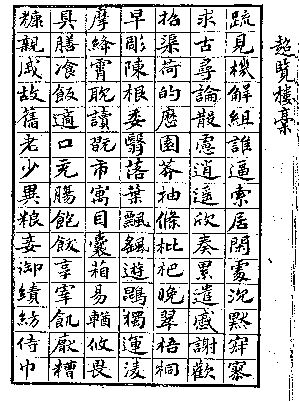 超覽樓藁
疏見機解組誰逼索居閒處沈默寂寥
求古尋論散慮逍遙欣奏累遣慼謝歡
招渠荷的歷園莽抽條枇杷晚翠梧桐
早彫陳根委翳落葉飄颻遊鵾獨運凌
摩絳霄耽讀翫市寓目囊箱易輶攸畏
具膳飡飯適口充腸飽飫享宰飢厭糟
糠親戚故舊老少異粮妾御績紡侍巾